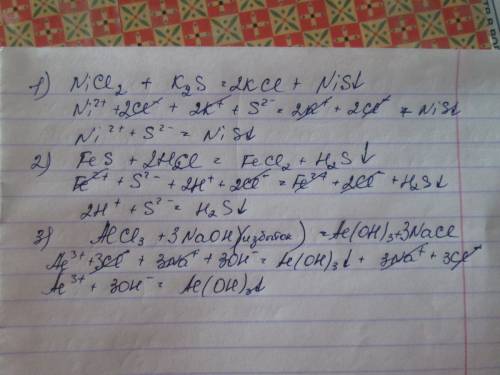 1) NiCl₂ + K₂S = 2KCl + NiS↓
Ni²⁺ + 2Cl⁻ + 2K⁺ + S²⁻ = 2K⁺ + 2Cl⁻ = NiS↓
Ni²⁺ + S²⁻ = NiS↓
2) FeS + 2HCl = FeCl₂ + H₂S↓
Fe²⁺ + S²⁻ + 2H⁺ + 2Cl⁻ = Fe²⁺ + 2Cl⁻ + H₂S↓
2H⁺ + S²⁻ = H₂S↓
3) AlCl₃ + 3NaOH(избыток) = Al(OH)₃ + 3NaCl
Al³⁺ + 3Cl⁻ + 3Na⁺ + 3OH⁻ = Al(OH)₃↓ + 3Na⁺ + 3Cl⁻
Al³⁺ + 3OH⁻ = Al(OH)₃↓